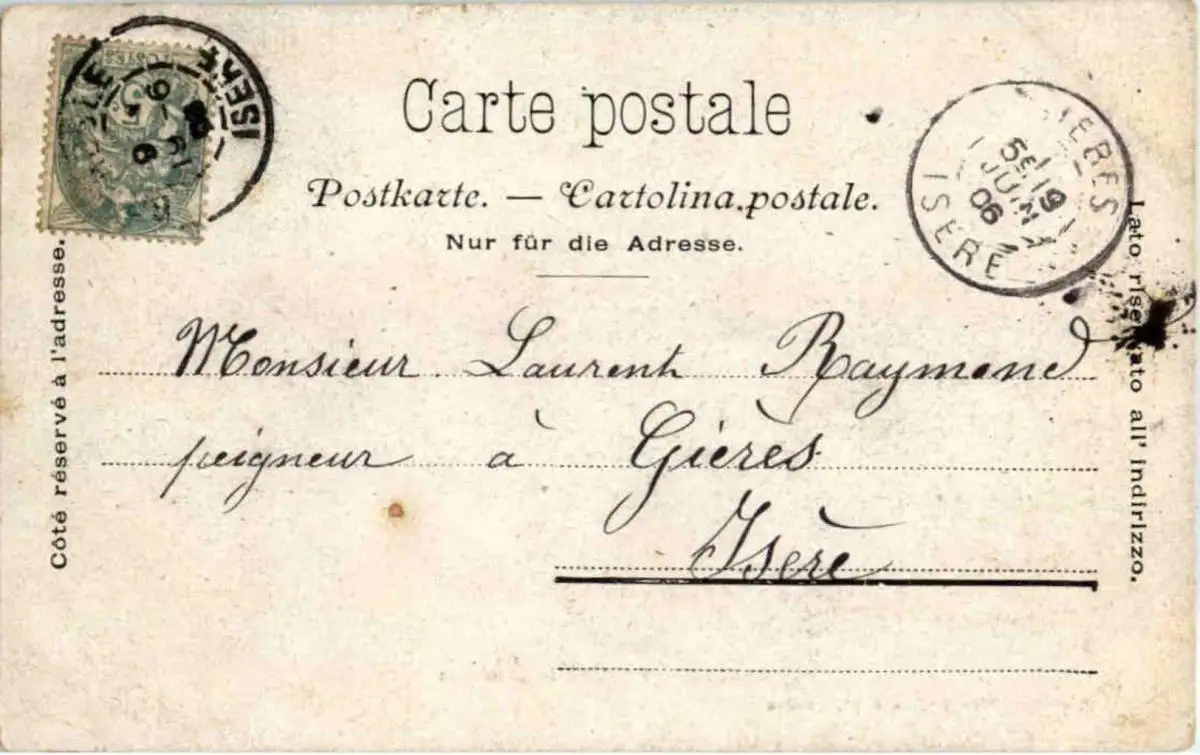 Carte postale
Postkarte. — Cartolina postale.
Nur für die Adresse.
Côté réservé à l'adresse.
Lato riservato all' indirizzo.
ISERE
19
JUIN
06
ISERE
Monsieur Laurent Raymond
peigneur à Gières
Isère